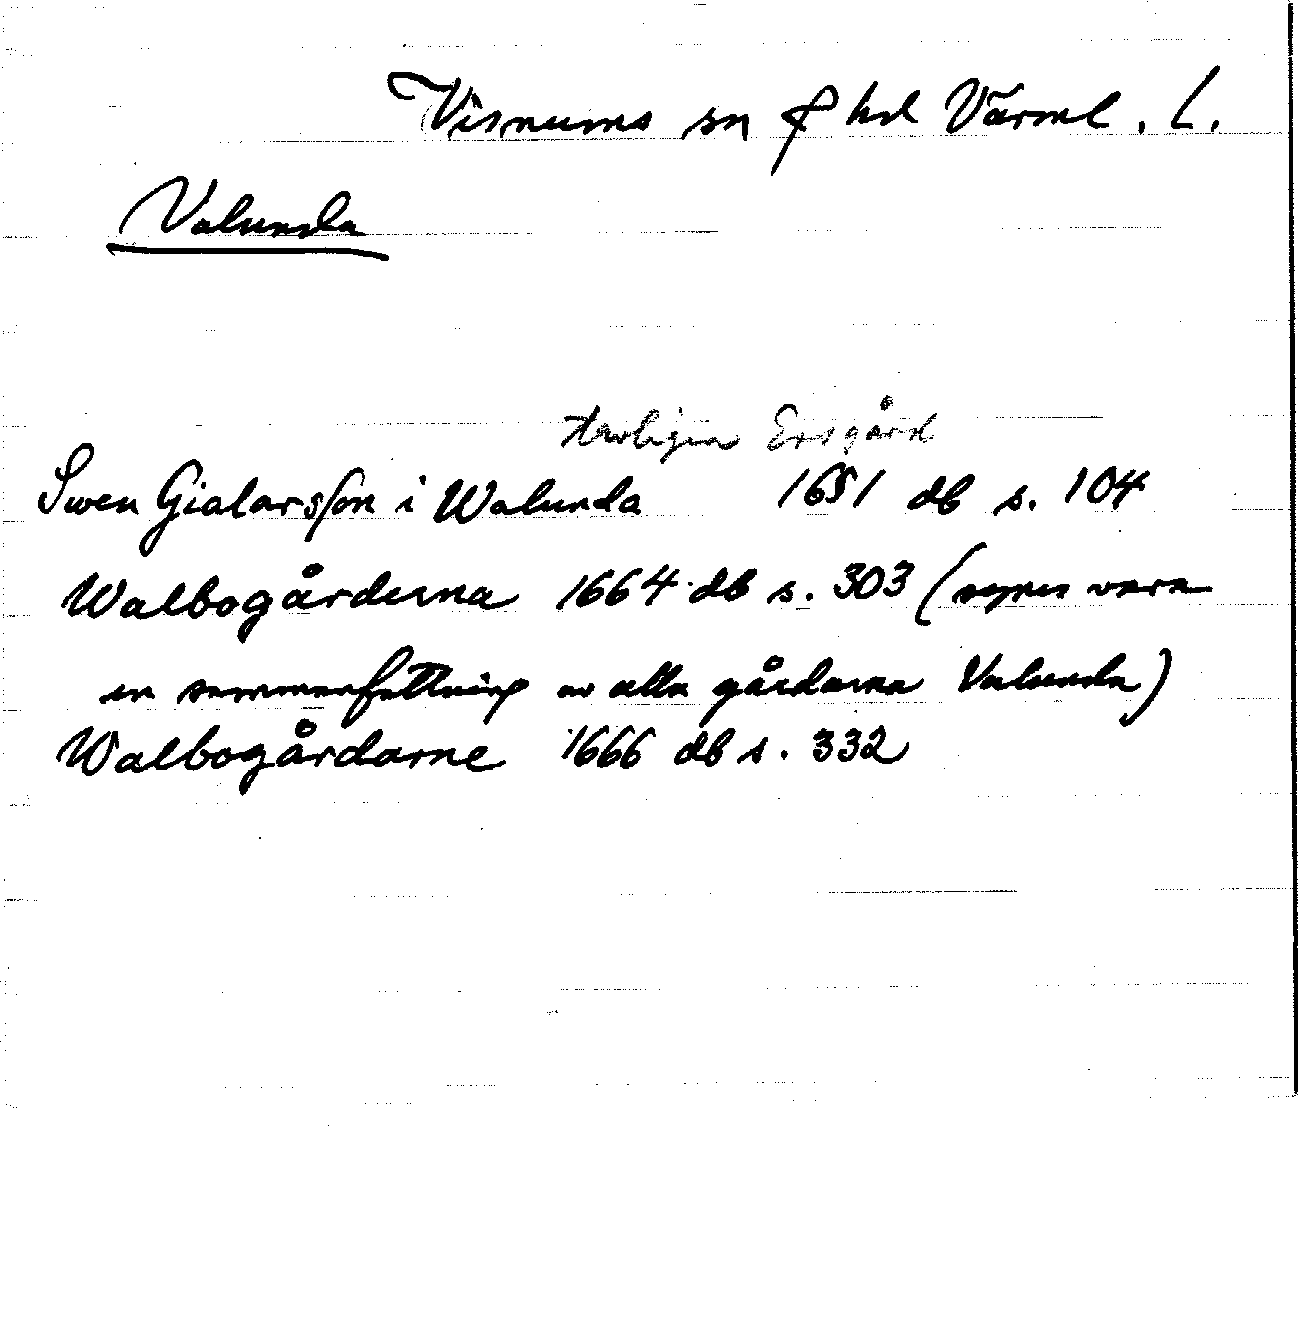 Visnums sn f hd Värml. L.
Valunda
troligen Ersgård
Swen Gialarsson i Walunda 1651 db s. 104
Walbogårderna 1664 db s. 303 (synes vara
en sammanfattning av alla gårdarna Valunda)
Walbogårdarne 1666 db s. 332